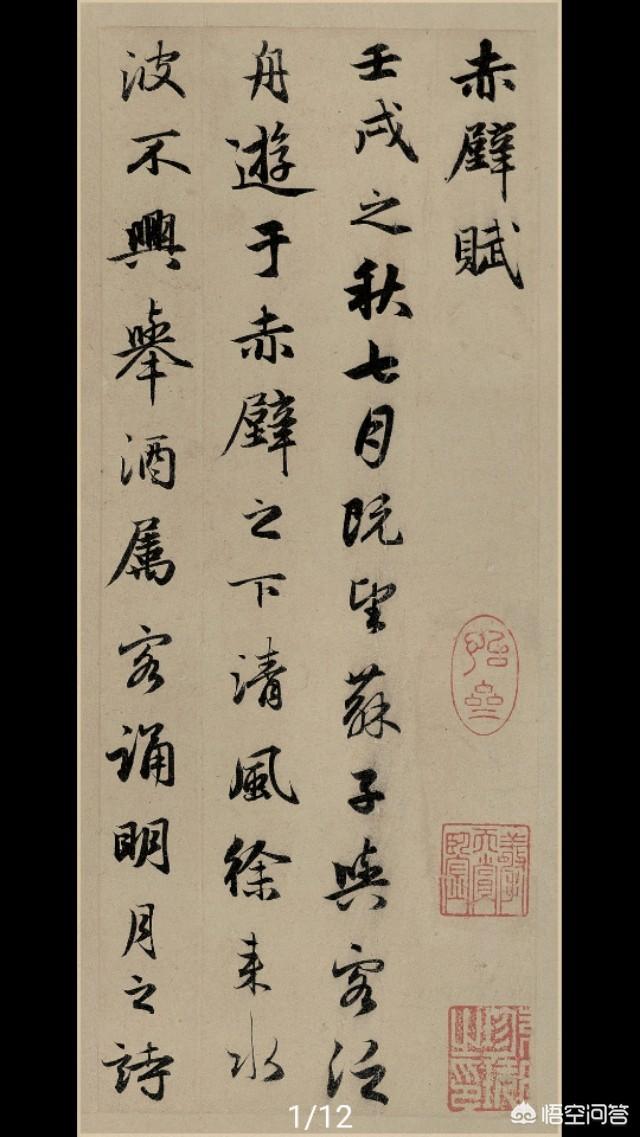 赤壁賦
壬戌之秋七月既望蘇子與客泛
舟遊于赤壁之下清風徐来水
波不興舉酒属客誦明月之詩
1/12
悟空问答